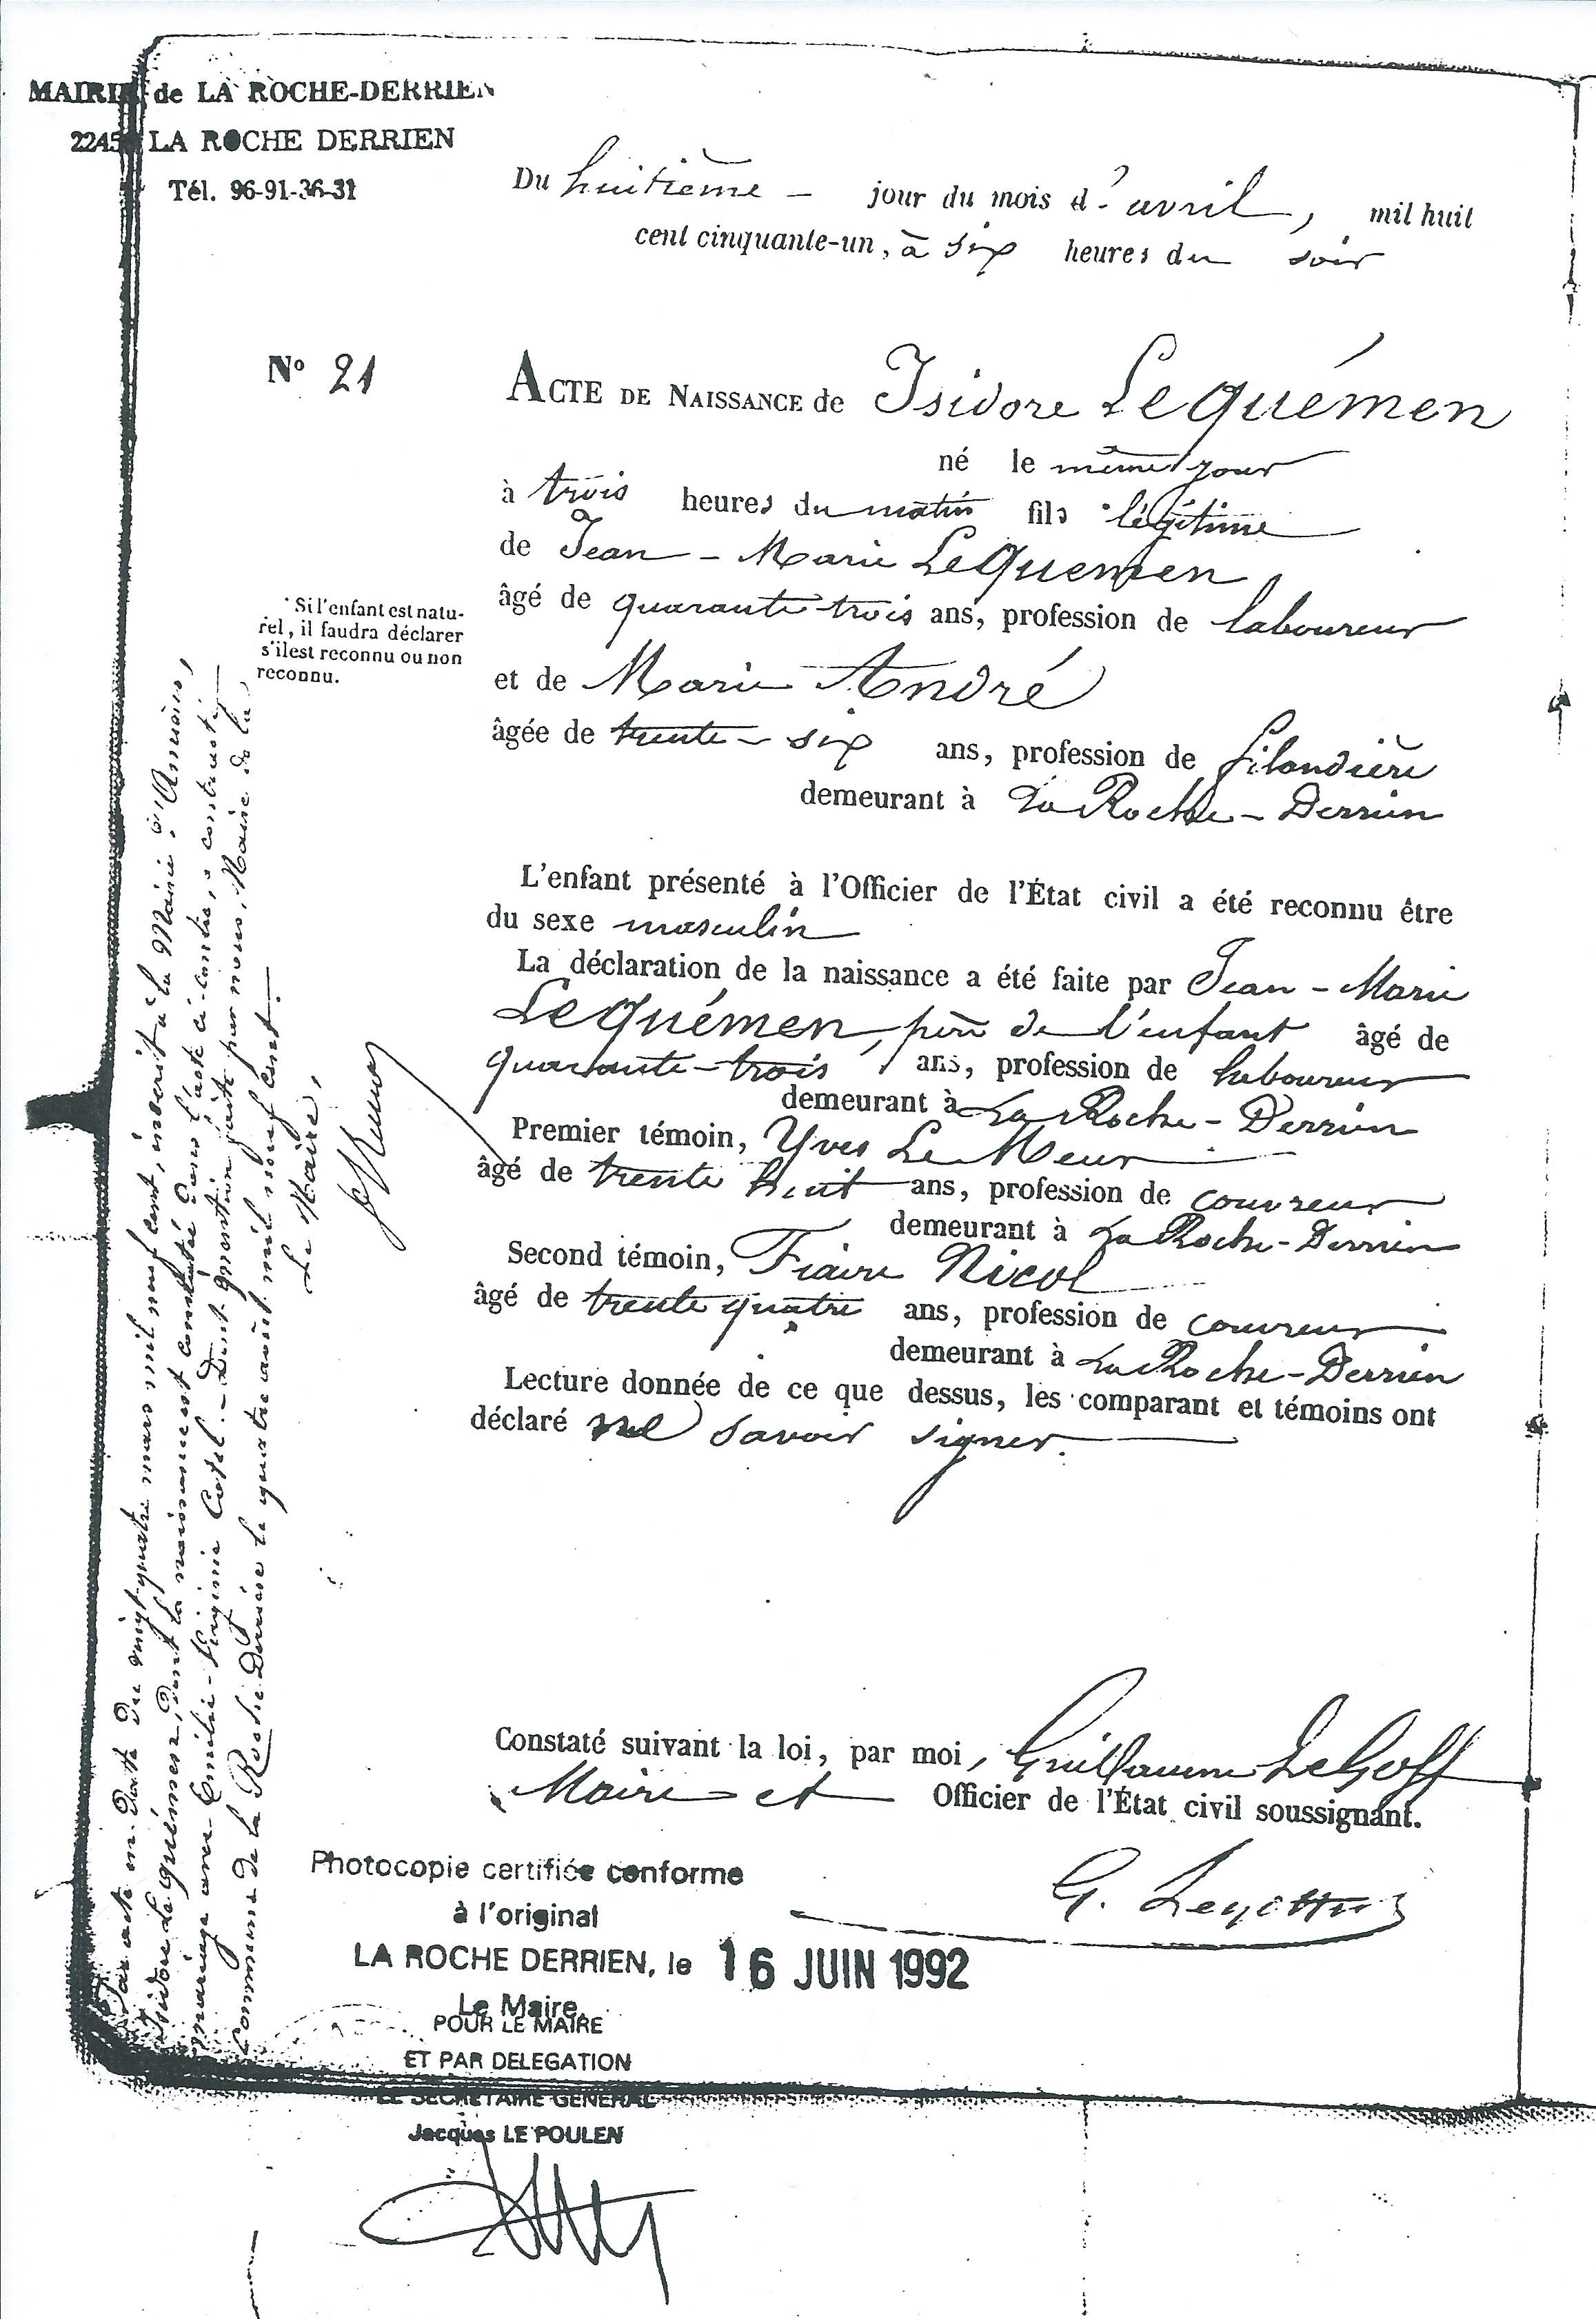 MAIRIE de LA ROCHE-DERRIEN
2245 LA ROCHE DERRIEN
Tél. 96-91-36-31
Du huitième jour du mois d'avril, mil huit
cent cinquante-un, à six heures du soir
N° 21
ACTE DE NAISSANCE de Isidore Le quémen
né le même jour
à trois heures du matin fils * légitime
de Jean-Marie Le quemen
âgé de quarante-trois ans, profession de laboureur
et de Marie André
âgée de trente-six ans, profession de filandière
demeurant à La Roche-Derrien
* Si l'enfant est natu-
rel, il faudra déclarer
s'il est reconnu ou non
reconnu.
L'enfant présenté à l'Officier de l'État civil a été reconnu être
du sexe masculin
La déclaration de la naissance a été faite par Jean-Marie
Le quémen, père de l'enfant âgé de
quarante-trois ans, profession de laboureur
demeurant à La Roche-Derrien
Premier témoin, Yves Le Meur
âgé de trente huit ans, profession de couvreur
demeurant à La Roche-Derrien
Second témoin, Fiacre Nicol
âgé de trente quatre ans, profession de couvreur
demeurant à La Roche-Derrien
Lecture donnée de ce que dessus, les comparant et témoins ont
déclaré ne savoir signer.
Constaté suivant la loi, par moi, Guillaume Le Goff
Maire et Officier de l'État civil soussignant.
G. Legoff
Par acte en date du vingt-quatre mars mil neuf cent, inscrit à la Mairie d'Amiens,
Isidore Le quémen, dont la naissance est constatée dans l'acte ci-contre, a contracté
mariage avec Emélie-Virginie Cotel. - Dont mention faite par nous, Maire de la
Commune de la Roche-Derrien le quatre août mil neuf cent.
Le Maire,
Photocopie certifiée conforme
à l'original
LA ROCHE DERRIEN, le 16 JUIN 1992
Le Maire,
POUR LE MAIRE
ET PAR DELEGATION
LE SECRETAIRE GENERAL
Jacques LE POULEN